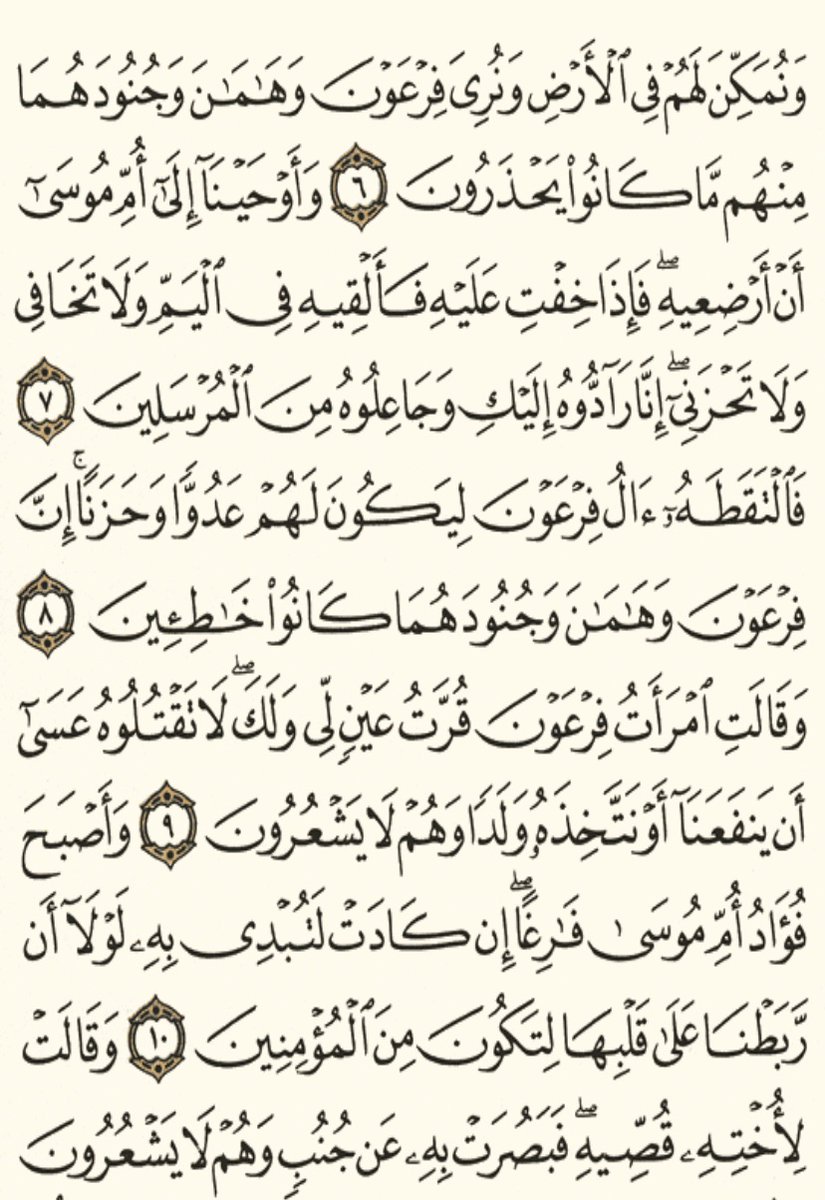 وَنُمَكِّنَ لَهُمۡ فِي ٱلۡأَرۡضِ وَنُرِيَ فِرۡعَوۡنَ وَهَٰمَٰنَ وَجُنُودَهُمَا
مِنۡهُم مَّا كَانُواْ يَحۡذَرُونَ ٦ وَأَوۡحَيۡنَآ إِلَىٰٓ أُمِّ مُوسَىٰٓ
أَنۡ أَرۡضِعِيهِۖ فَإِذَا خِفۡتِ عَلَيۡهِ فَأَلۡقِيهِ فِي ٱلۡيَمِّ وَلَا تَخَافِي
وَلَا تَحۡزَنِيٓۖ إِنَّا رَآدُّوهُ إِلَيۡكِ وَجَاعِلُوهُ مِنَ ٱلۡمُرۡسَلِينَ ٧
فَٱلۡتَقَطَهُۥٓ ءَالُ فِرۡعَوۡنَ لِيَكُونَ لَهُمۡ عَدُوّٗا وَحَزَنًاۚ إِنَّ
فِرۡعَوۡنَ وَهَٰمَٰنَ وَجُنُودَهُمَا كَانُواْ خَٰطِـِٔينَ ٨
وَقَالَتِ ٱمۡرَأَتُ فِرۡعَوۡنَ قُرَّتُ عَيۡنٖ لِّي وَلَكَۖ لَا تَقۡتُلُوهُ عَسَىٰٓ
أَن يَنفَعَنَآ أَوۡ نَتَّخِذَهُۥ وَلَدٗا وَهُمۡ لَا يَشۡعُرُونَ ٩ وَأَصۡبَحَ
فُؤَادُ أُمِّ مُوسَىٰ فَٰرِغًاۖ إِن كَادَتۡ لَتُبۡدِي بِهِۦ لَوۡلَآ أَن
رَّبَطۡنَا عَلَىٰ قَلۡبِهَا لِتَكُونَ مِنَ ٱلۡمُؤۡمِنِينَ ١٠ وَقَالَتۡ
لِأُخۡتِهِۦ قُصِّيهِۖ فَبَصُرَتۡ بِهِۦ عَن جُنُبٖ وَهُمۡ لَا يَشۡعُرُونَ